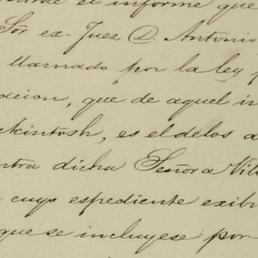 el informe que
Sor ex-Juez D. Antonio
llamado por la ley p
dicion, que de aquel in
ckintosh, es el delos a
ntra dicha Señora Vil
cuyo espediente exibi
que se incluyese por